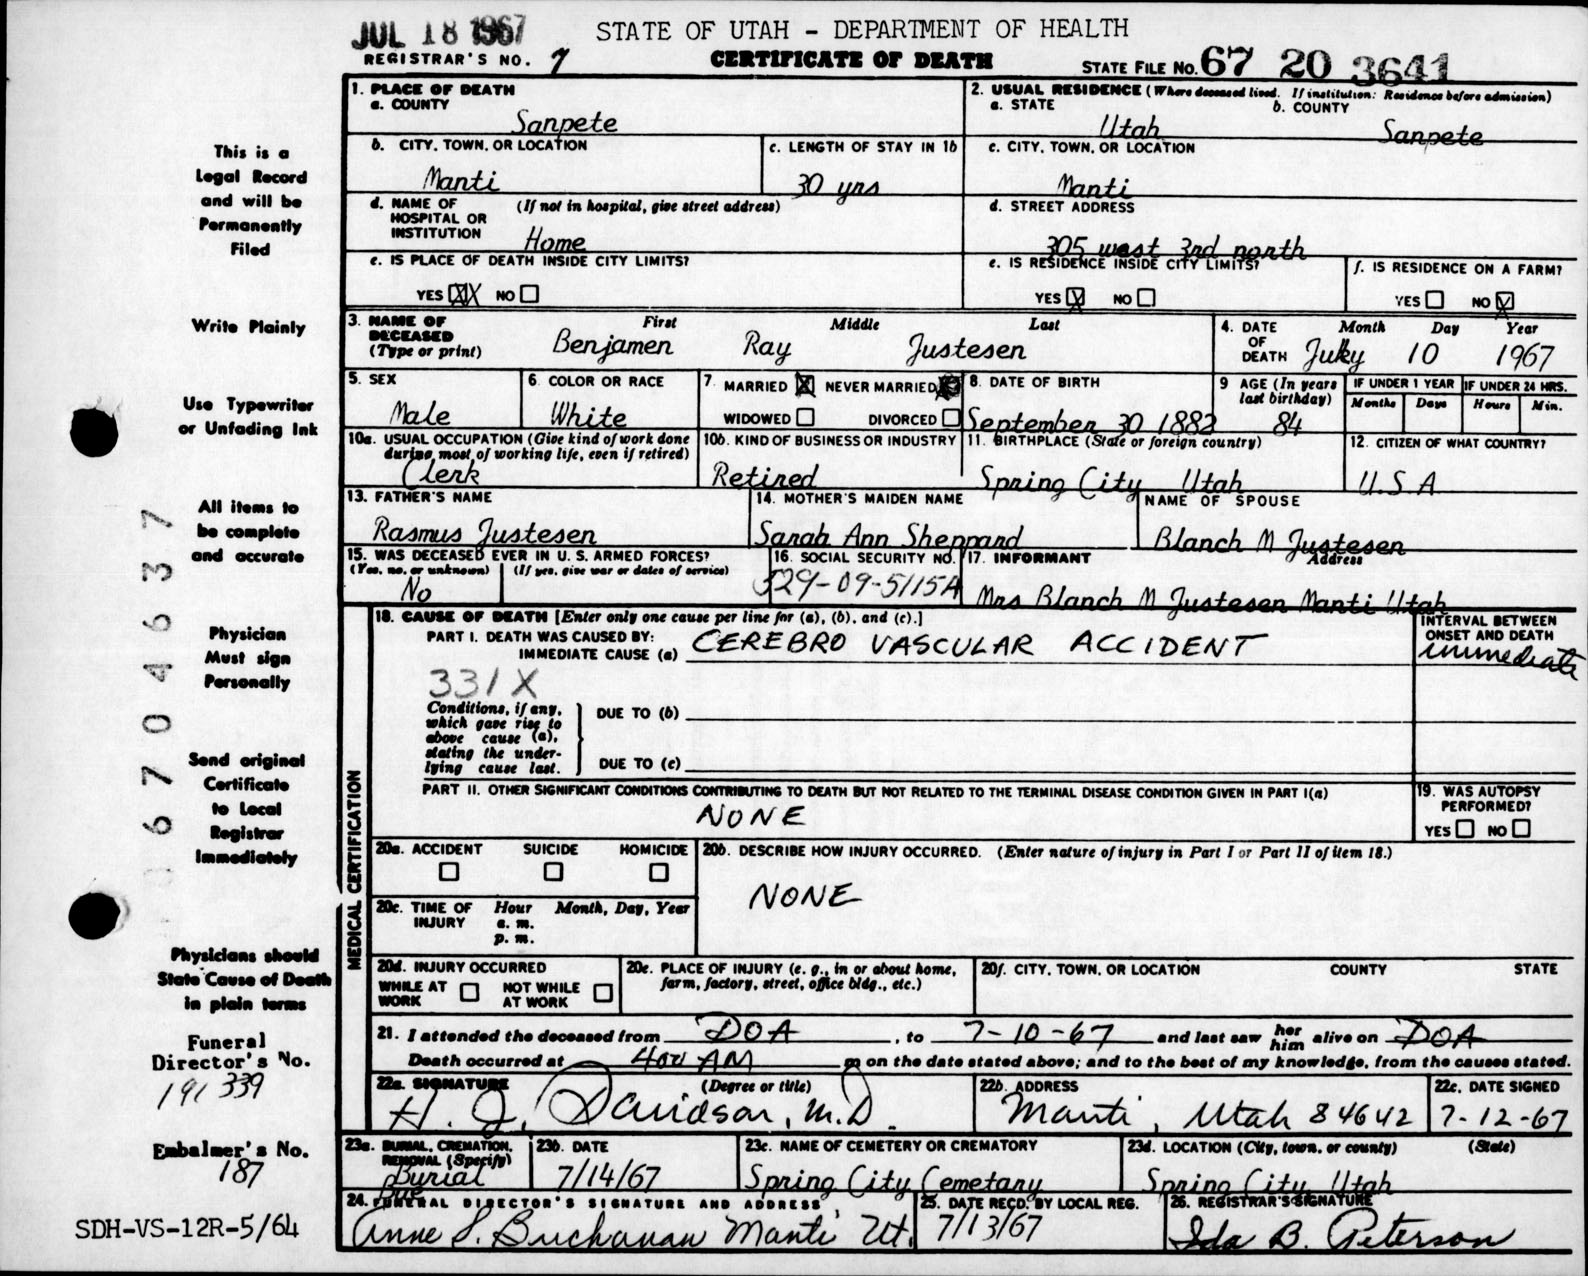 JUL 18 1967
STATE OF UTAH - DEPARTMENT OF HEALTH
REGISTRAR'S NO. 7
CERTIFICATE OF DEATH
STATE FILE NO. 67 20 3641
This is a
Legal Record
and will be
Permanently
Filed
Write Plainly
Use Typewriter
or Unfading Ink
All items to
be complete
and accurate
Physician
Must sign
Personally
Send original
Certificate
to Local
Registrar
Immediately
Physicians should
State Cause of Death
in plain terms
Funeral
Director's No.
191 339
Embalmer's No.
187
SDH-VS-12R-5/64
06704637
1. PLACE OF DEATH
a. COUNTY
Sanpete
2. USUAL RESIDENCE (Where deceased lived. If institution: Residence before admission)
a. STATE b. COUNTY
Utah Sanpete
b. CITY, TOWN, OR LOCATION
Manti
c. LENGTH OF STAY IN 1b
30 yrs
c. CITY, TOWN, OR LOCATION
Manti
d. NAME OF (If not in hospital, give street address)
HOSPITAL OR
INSTITUTION
Home
d. STREET ADDRESS
305 west 3rd north
e. IS PLACE OF DEATH INSIDE CITY LIMITS?
YES XX NO
e. IS RESIDENCE INSIDE CITY LIMITS?
YES X NO
f. IS RESIDENCE ON A FARM?
YES NO X
3. NAME OF First Middle Last
DECEASED
(Type or print) Benjamen Ray Justesen
4. DATE Month Day Year
OF
DEATH Juky 10 1967
5. SEX
Male
6. COLOR OR RACE
White
7. MARRIED X NEVER MARRIED
WIDOWED DIVORCED
8. DATE OF BIRTH
September 30 1882
9 AGE (In years
last birthday)
84
IF UNDER 1 YEAR
Months Days
IF UNDER 24 HRS.
Hours Min.
10a. USUAL OCCUPATION (Give kind of work done
during most of working life, even if retired)
Clerk
10b. KIND OF BUSINESS OR INDUSTRY
Retired
11. BIRTHPLACE (State or foreign country)
Spring City Utah
12. CITIZEN OF WHAT COUNTRY?
U.S A
13. FATHER'S NAME
Rasmus Justesen
14. MOTHER'S MAIDEN NAME
Sarah Ann Sheppard
NAME OF SPOUSE
Blanch M Justesen
15. WAS DECEASED EVER IN U. S. ARMED FORCES?
(Yes, no, or unknown) (If yes, give war or dates of service)
No
16. SOCIAL SECURITY NO.
529-09-5115A
17. INFORMANT Address
Mrs Blanch M Justesen Manti Utah
MEDICAL CERTIFICATION
18. CAUSE OF DEATH [Enter only one cause per line for (a), (b), and (c).]
PART I. DEATH WAS CAUSED BY:
IMMEDIATE CAUSE (a) CEREBRO VASCULAR ACCIDENT
INTERVAL BETWEEN
ONSET AND DEATH
immediate
331X
Conditions, if any,
which gave rise to
above cause (a),
stating the under-
lying cause last.
DUE TO (b)
DUE TO (c)
PART II. OTHER SIGNIFICANT CONDITIONS CONTRIBUTING TO DEATH BUT NOT RELATED TO THE TERMINAL DISEASE CONDITION GIVEN IN PART I(a)
NONE
19. WAS AUTOPSY
PERFORMED?
YES NO
20a. ACCIDENT SUICIDE HOMICIDE
20b. DESCRIBE HOW INJURY OCCURRED. (Enter nature of injury in Part I or Part II of item 18.)
NONE
20c. TIME OF Hour Month, Day, Year
INJURY a. m.
p. m.
20d. INJURY OCCURRED
WHILE AT NOT WHILE
WORK AT WORK
20e. PLACE OF INJURY (e. g., in or about home,
farm, factory, street, office bldg., etc.)
20f. CITY, TOWN, OR LOCATION COUNTY STATE
21. I attended the deceased from DOA, to 7-10-67 and last saw her him alive on DOA
Death occurred at 400 AM m on the date stated above; and to the best of my knowledge, from the causes stated.
22a. SIGNATURE (Degree or title)
H. J. Davidson, M.D.
22b. ADDRESS
Manti, Utah 84642
22c. DATE SIGNED
7-12-67
23a. BURIAL, CREMATION,
REMOVAL (Specify)
Burial
23b. DATE
7/14/67
23c. NAME OF CEMETERY OR CREMATORY
Spring City Cemetary
23d. LOCATION (City, town, or county) (State)
Spring City, Utah
24. FUNERAL DIRECTOR'S SIGNATURE AND ADDRESS
Anne S. Buchanan Manti Ut.
25. DATE RECD. BY LOCAL REG.
7/13/67
26. REGISTRAR'S SIGNATURE
Ida B. Peterson